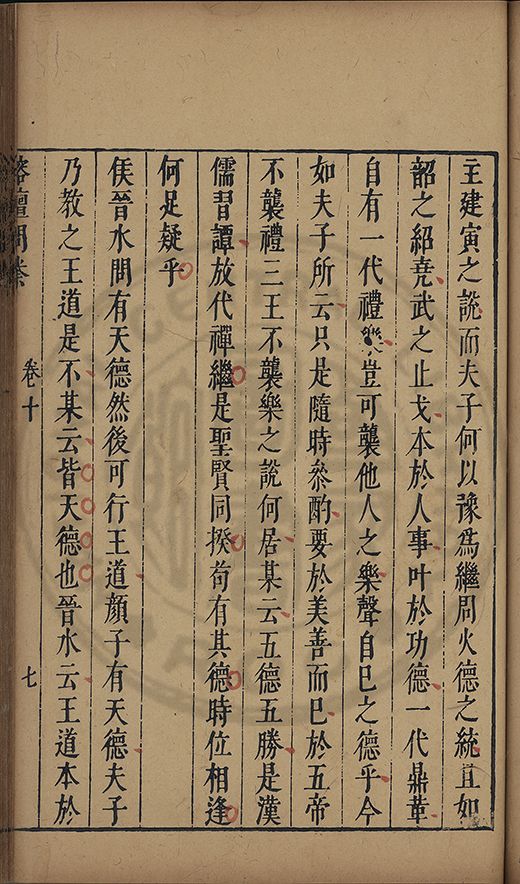 主建寅之說而夫子何以豫為繼周火德之統且如
韶之紹堯武之止戈本於人事叶於功德一代鼎革
自有一代禮樂豈可襲他人之樂聲自巳之德乎今
如夫子所云只是隨時叅酌要於美善而巳於五帝
不襲禮三王不襲樂之說何居某云五德五勝是漢
儒習譚放代禪繼是聖賢同揆苟有其德時位相逢
何足疑乎
侯晉水問有天德然後可行王道顏子有天德夫子
乃教之王道是不某云皆天德也晉水云王道本於
榕壇問業
卷十
七